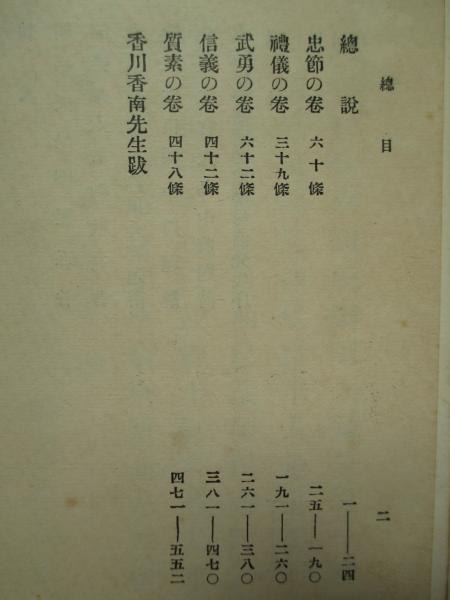 總目 二
總說 一――二四
忠節の卷 六十條 二五―一九〇
禮儀の卷 三十九條 一九一―二六〇
武勇の卷 六十二條 二六一―三八〇
信義の卷 四十二條 三八一―四七〇
質素の卷 四十八條 四七一―五五二
香川香南先生跋